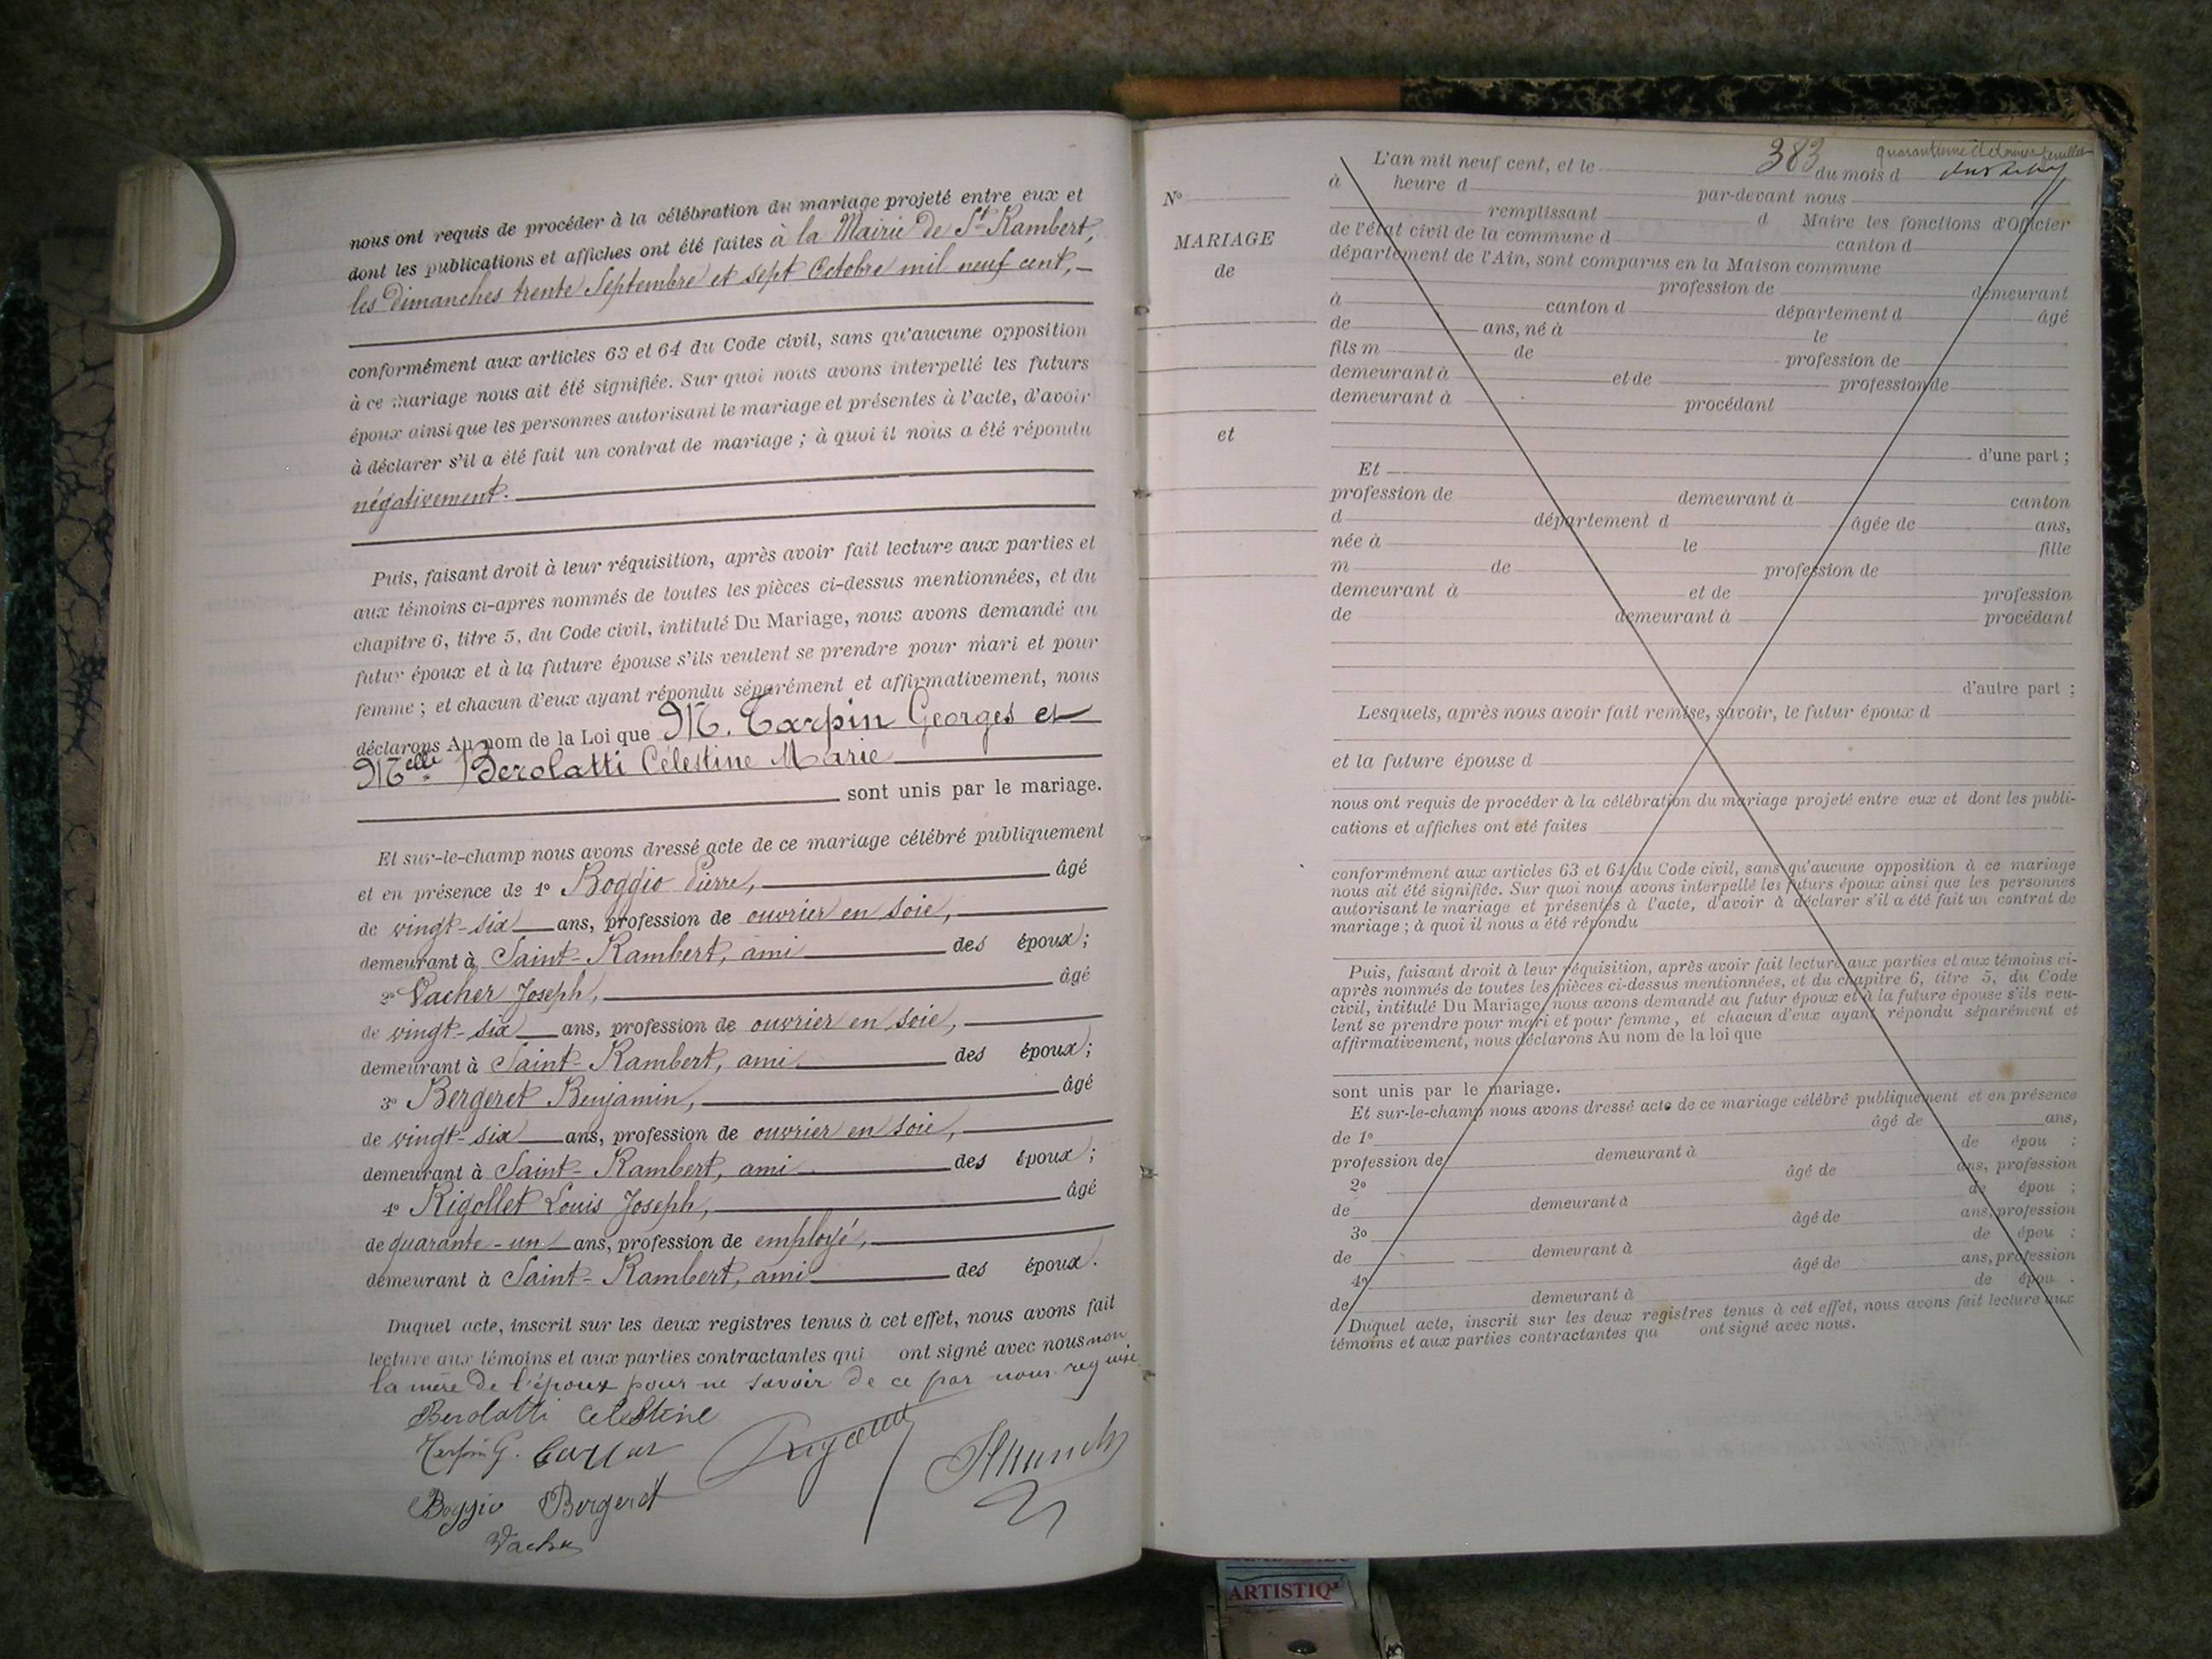 nous ont requis de procéder à la célébration du mariage projeté entre eux et
dont les publications et affiches ont été faites à la Mairie de St-Rambert,
les dimanches trente Septembre et sept Octobre mil neuf cent,
conformément aux articles 63 et 64 du Code civil, sans qu'aucune opposition
à ce mariage nous ait été signifiée. Sur quoi nous avons interpellé les futurs
époux ainsi que les personnes autorisant le mariage et présentes à l'acte, d'avoir
à déclarer s'il a été fait un contrat de mariage ; à quoi il nous a été répondu
négativement.
Puis, faisant droit à leur réquisition, après avoir fait lecture aux parties et
aux témoins ci-après nommés de toutes les pièces ci-dessus mentionnées, et du
chapitre 6, titre 5, du Code civil, intitulé Du Mariage, nous avons demandé au
futur époux et à la future épouse s'ils veulent se prendre pour mari et pour
femme ; et chacun d'eux ayant répondu séparément et affirmativement, nous
déclarons Au nom de la Loi que M. Tarpin Georges et
Melle Berolatti Célestine Marie
sont unis par le mariage.
Et sur-le-champ nous avons dressé acte de ce mariage célébré publiquement
et en présence de 1° Boggio Pierre, âgé
de vingt-six ans, profession de ouvrier en soie,
demeurant à Saint-Rambert, ami des époux ;
2° Vacher Joseph, âgé
de vingt-six ans, profession de ouvrier en soie,
demeurant à Saint-Rambert, ami des époux ;
3° Bergeret Benjamin, âgé
de vingt-six ans, profession de ouvrier en soie,
demeurant à Saint-Rambert, ami des époux ;
4° Rigollet Louis Joseph, âgé
de quarante-un ans, profession de employé,
demeurant à Saint-Rambert, ami des époux.
Duquel acte, inscrit sur les deux registres tenus à cet effet, nous avons fait
lecture aux témoins et aux parties contractantes qui ont signé avec nous non
la mère de l'époux pour ne savoir de ce par nous requise
Berolatti Celestine
Tarpin G.
Boggio Bergeret
Vacher
383 quarantième et dernier feuillet
L'an mil neuf cent, et le du mois d
à heure d par-devant nous
remplissant d Maire les fonctions d'Officier
de l'état civil de la commune d canton d
département de l'Ain, sont comparus en la Maison commune
profession de demeurant
à canton d département d âgé
de ans, né à le
fils m de profession de
demeurant à et de profession de
demeurant à procédant
d'une part ;
N°
MARIAGE
de
et
Et
profession de demeurant à canton
d département d âgée de ans,
née à le fille
m de profession de
demeurant à et de profession
de demeurant à procédant
d'autre part ;
Lesquels, après nous avoir fait remise, savoir, le futur époux d
et la future épouse d
nous ont requis de procéder à la célébration du mariage projeté entre eux et dont les publi-
cations et affiches ont été faites
conformément aux articles 63 et 64 du Code civil, sans qu'aucune opposition à ce mariage
nous ait été signifiée. Sur quoi nous avons interpellé les futurs époux ainsi que les personnes
autorisant le mariage et présentes à l'acte, d'avoir à déclarer s'il a été fait un contrat de
mariage ; à quoi il nous a été répondu
Puis, faisant droit à leur réquisition, après avoir fait lecture aux parties et aux témoins ci-
après nommés de toutes les pièces ci-dessus mentionnées, et du chapitre 6, titre 5, du Code
civil, intitulé Du Mariage, nous avons demandé au futur époux et à la future épouse s'ils veu-
lent se prendre pour mari et pour femme, et chacun d'eux ayant répondu séparément et
affirmativement, nous déclarons Au nom de la loi que
sont unis par le mariage.
Et sur-le-champ nous avons dressé acte de ce mariage célébré publiquement et en présence
de 1° âgé de ans,
profession de demeurant à de épou ;
2° âgé de ans, profession
de demeurant à de épou ;
3° âgé de ans, profession
de demeurant à de épou ;
4° âgé de ans, profession
de demeurant à de épou .
Duquel acte, inscrit sur les deux registres tenus à cet effet, nous avons fait lecture aux
témoins et aux parties contractantes qui ont signé avec nous.
ARTISTIQ